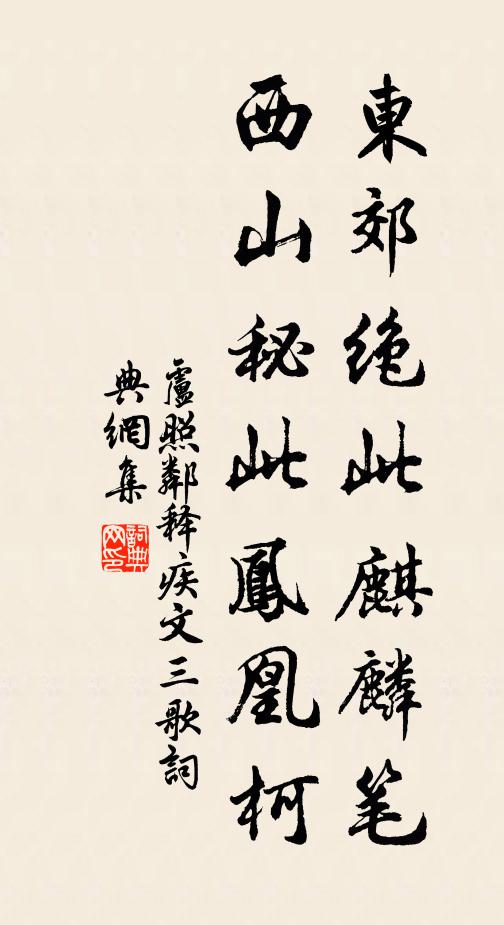 東郊绝此麒麟笔
西山秘此鳳凰柯
盧照鄰释疾文三歌詞
典網集
詞典
网印